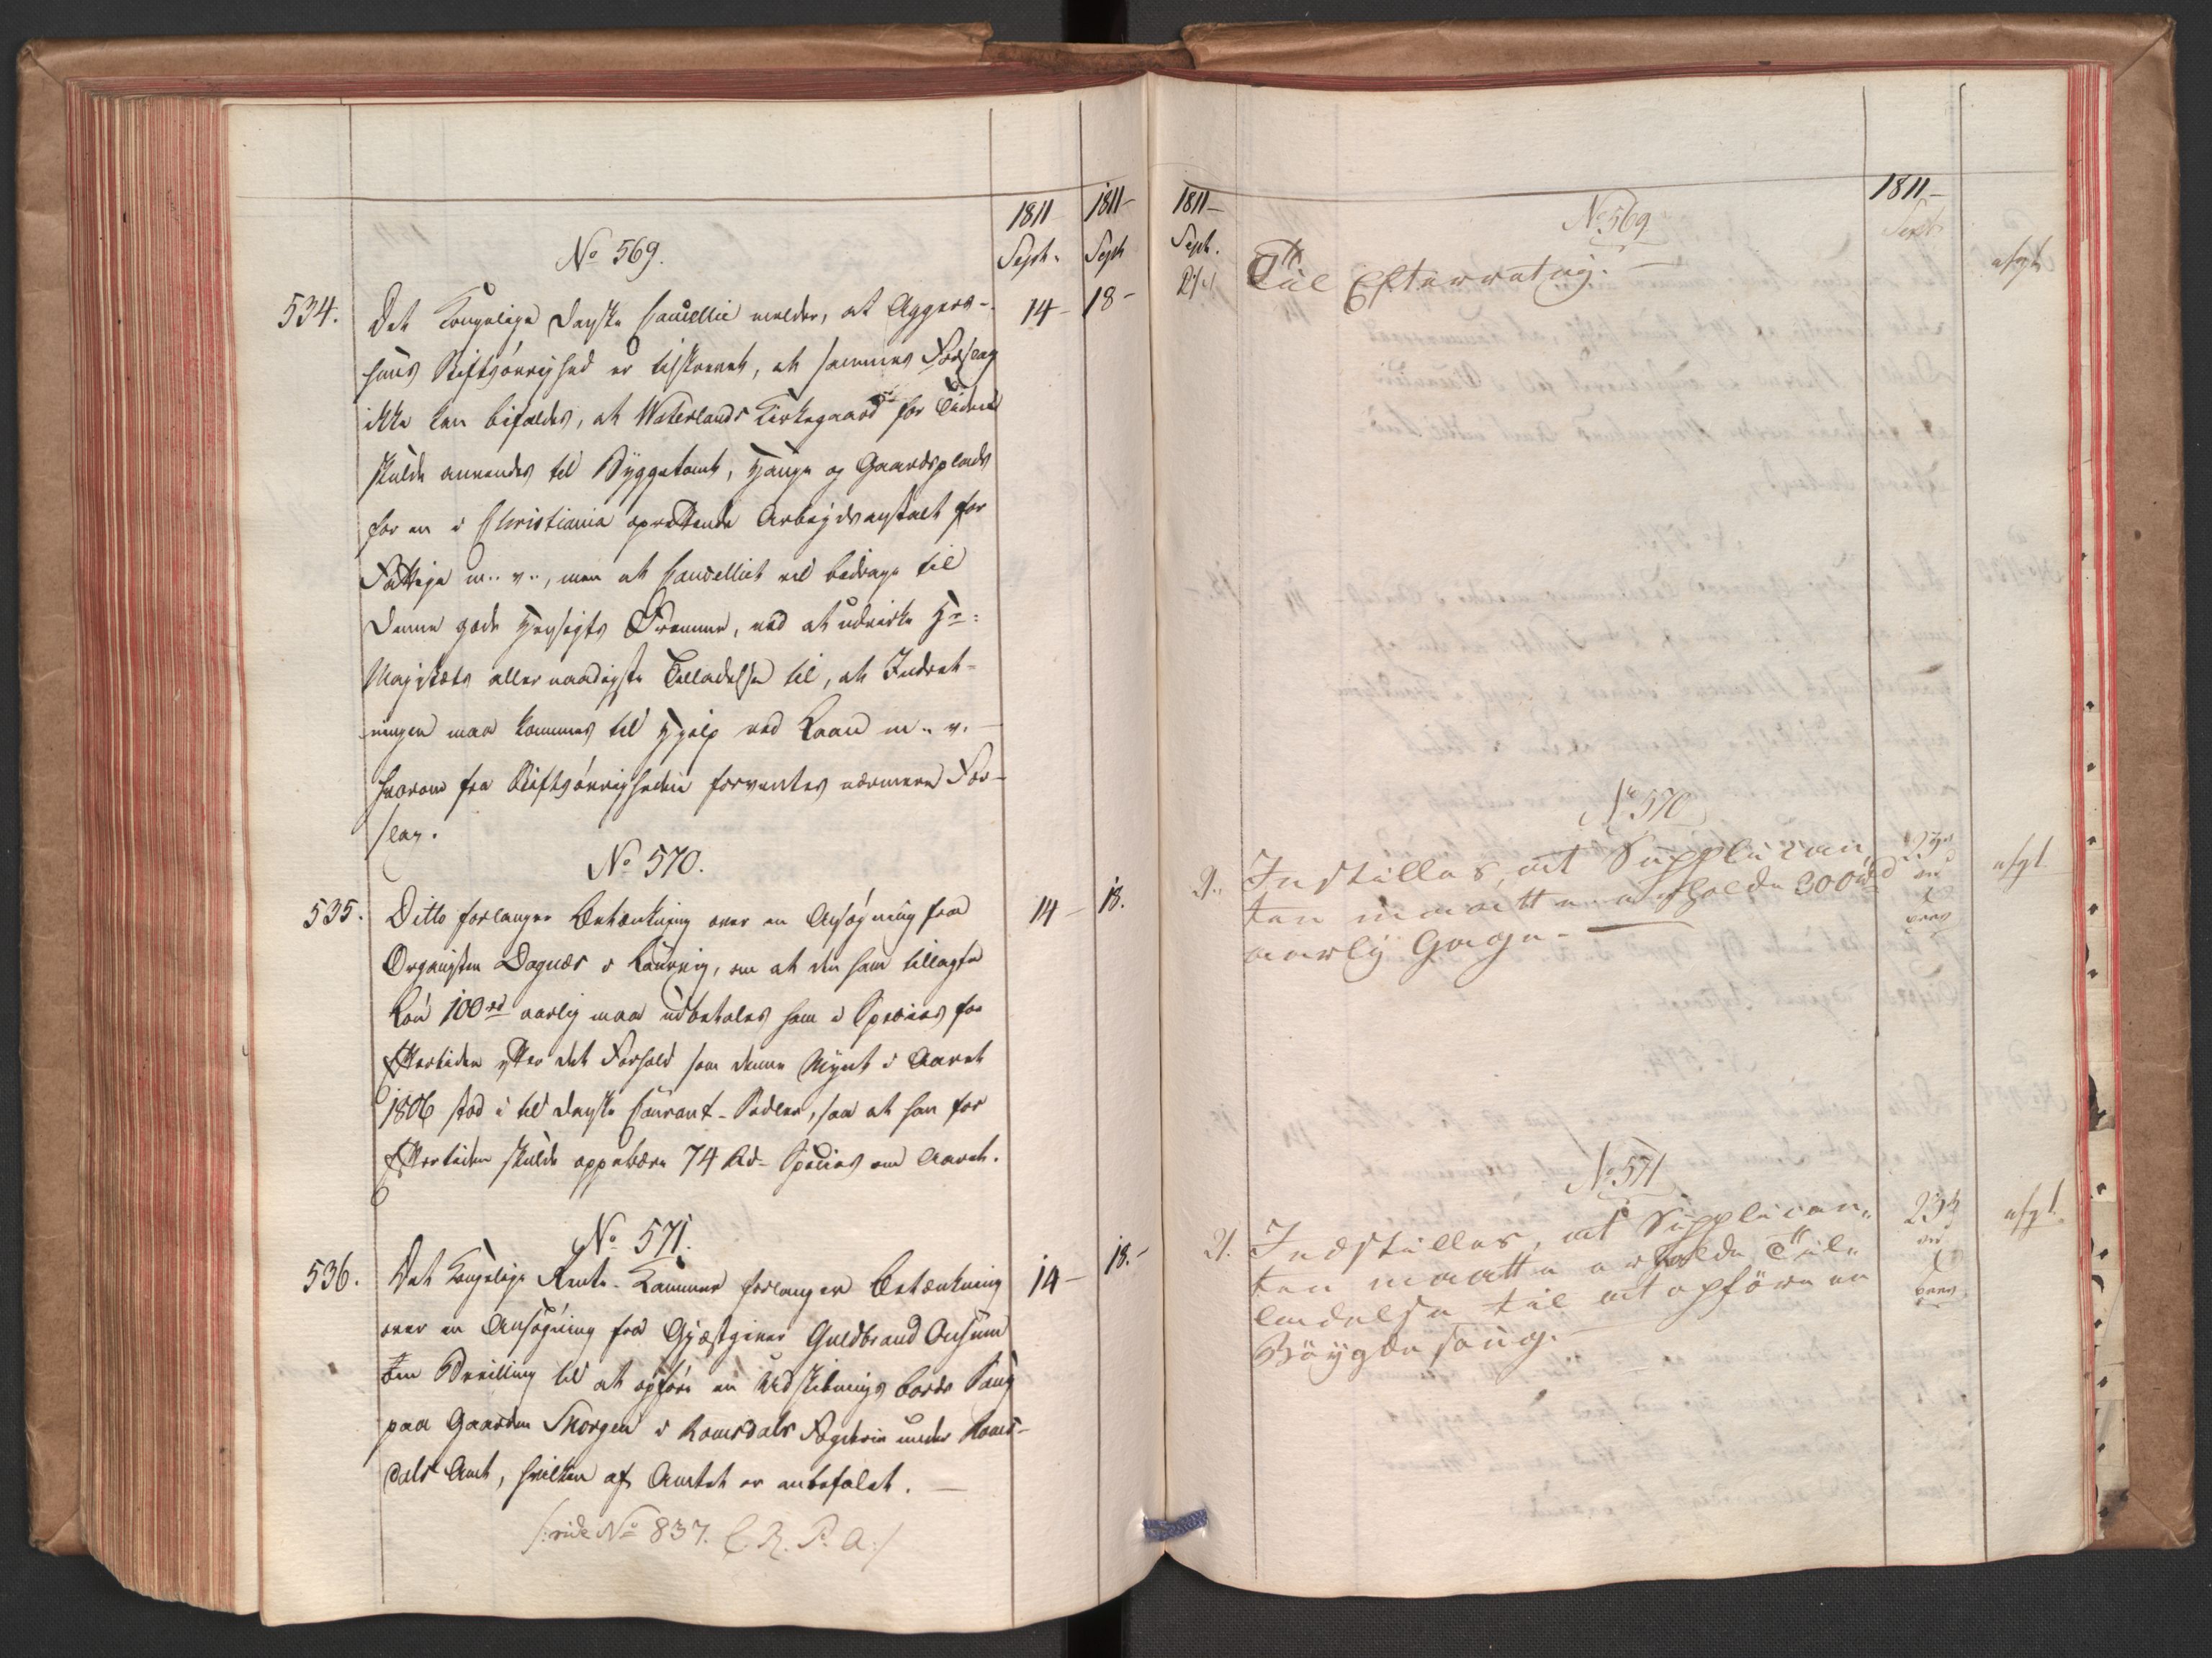 1811 1811-
Sept. Sept
No 569.
534. Det Kongelige Danske Cancellie melder, at Aggers- 14- 18-
huus Stiftsøvrighed er tilskrevet, at sammes Forslag
ikke kan bifaldes, at Waterlands Kirkegaard for Tiden
skulde anvendes til Byggetomt, Hauge og Gaardsplads
for en i Christiania oprettende Arbeydsanstalt for
Fattige m. v., men at Cancelliet vil bidrage til
denne gode Hensigts Fremme, ved at udvirke Hs:
Majestæts allernaadigste Tilladelse til, at Indret-
ningen maa kommes til Hjelp ved Laan m. v.
hvorom fra Stiftsøvrigheden forventes nærmere For-
slag.
No 570.
535. Ditto forlanger Betænkning over en Ansøgning fra 14- 18.
Organisten Dagnæs i Laurvig, om at den ham tillagte
Løn 100 rd aarlig maa udbetales ham i Species for
Eftertiden efter det Forhold som denne Mynt i Aaret
1806 stod i til danske Courant-Sedler, saa at han for
Eftertiden skulde oppebære 74 Rd. Species om Aaret.
No 571.
536. Det Kongelige Rente-Kammer forlanger Betænkning 14- 18.-
over en Ansøgning fra Gjæstgiver Guldbrand Onsum
om Bevilling til at opføre en Udskibnings bords Saug
paa Gaarden Skorgen i Romsdals Fogderie under Roms-
dals Amt, hvilken af Amtet er anbefalet.
/: vide No 837. C. R. P. A:/
1811- 1811-
Sept. Sept
No 569
Til Efterretnig. afgt
No 570
21. Indstilles, at Supplican afgt
ten maatte erholde 300 rd
aarlig Gage.
No 571
21. Indstilles, at Supplican- 23 afgt.
ten maatte erholde Til-
ladelse til at opføre en
Böygdesaug.